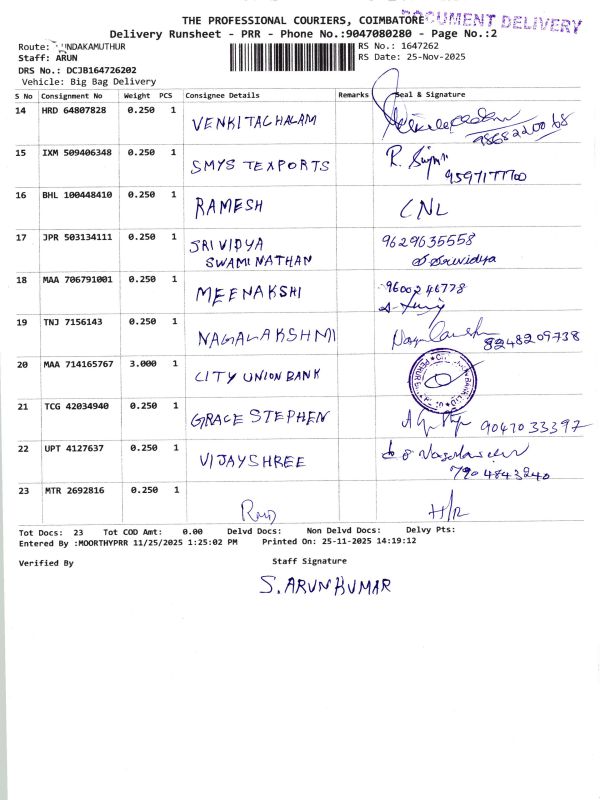 DOCUMENT DELIVERY
THE PROFESSIONAL COURIERS, COIMBATORE
Delivery Runsheet - PRR - Phone No.:9047080280 - Page No.:2
Route: UNDAKAMUTHUR RS No.: 1647262
Staff: ARUN RS Date: 25-Nov-2025
DRS No.: DCJB164726202
Vehicle: Big Bag Delivery
S No Consignment No Weight PCS Consignee Details Remarks Seal & Signature
14 HRD 64807828 0.250 1 VENKITACHALAM
15 IXM 509406348 0.250 1 SMYS TEXPORTS 9597177700
16 BHL 100448410 0.250 1 RAMESH CNL
17 JPR 503134111 0.250 1 SRIVIDYA 9629635558
SWAMINATHAN S Srividya
18 MAA 706791001 0.250 1 MEENAKSHI 9600246778
19 TNJ 7156143 0.250 1 NAGALAKSHMI 8248209738
20 MAA 714165767 3.000 1 CITY UNION BANK
21 TCG 42034940 0.250 1 GRACE STEPHEN 9047033397
22 UPT 4127637 0.250 1 VIJAYSHREE
7904843240
23 MTR 2692816 0.250 1
Tot Docs: 23 Tot COD Amt: 0.00 Delvd Docs: Non Delvd Docs: Delvy Pts:
Entered By :MOORTHYPRR 11/25/2025 1:25:02 PM Printed On: 25-11-2025 14:19:12
Verified By Staff Signature
S. ARUNKUMAR